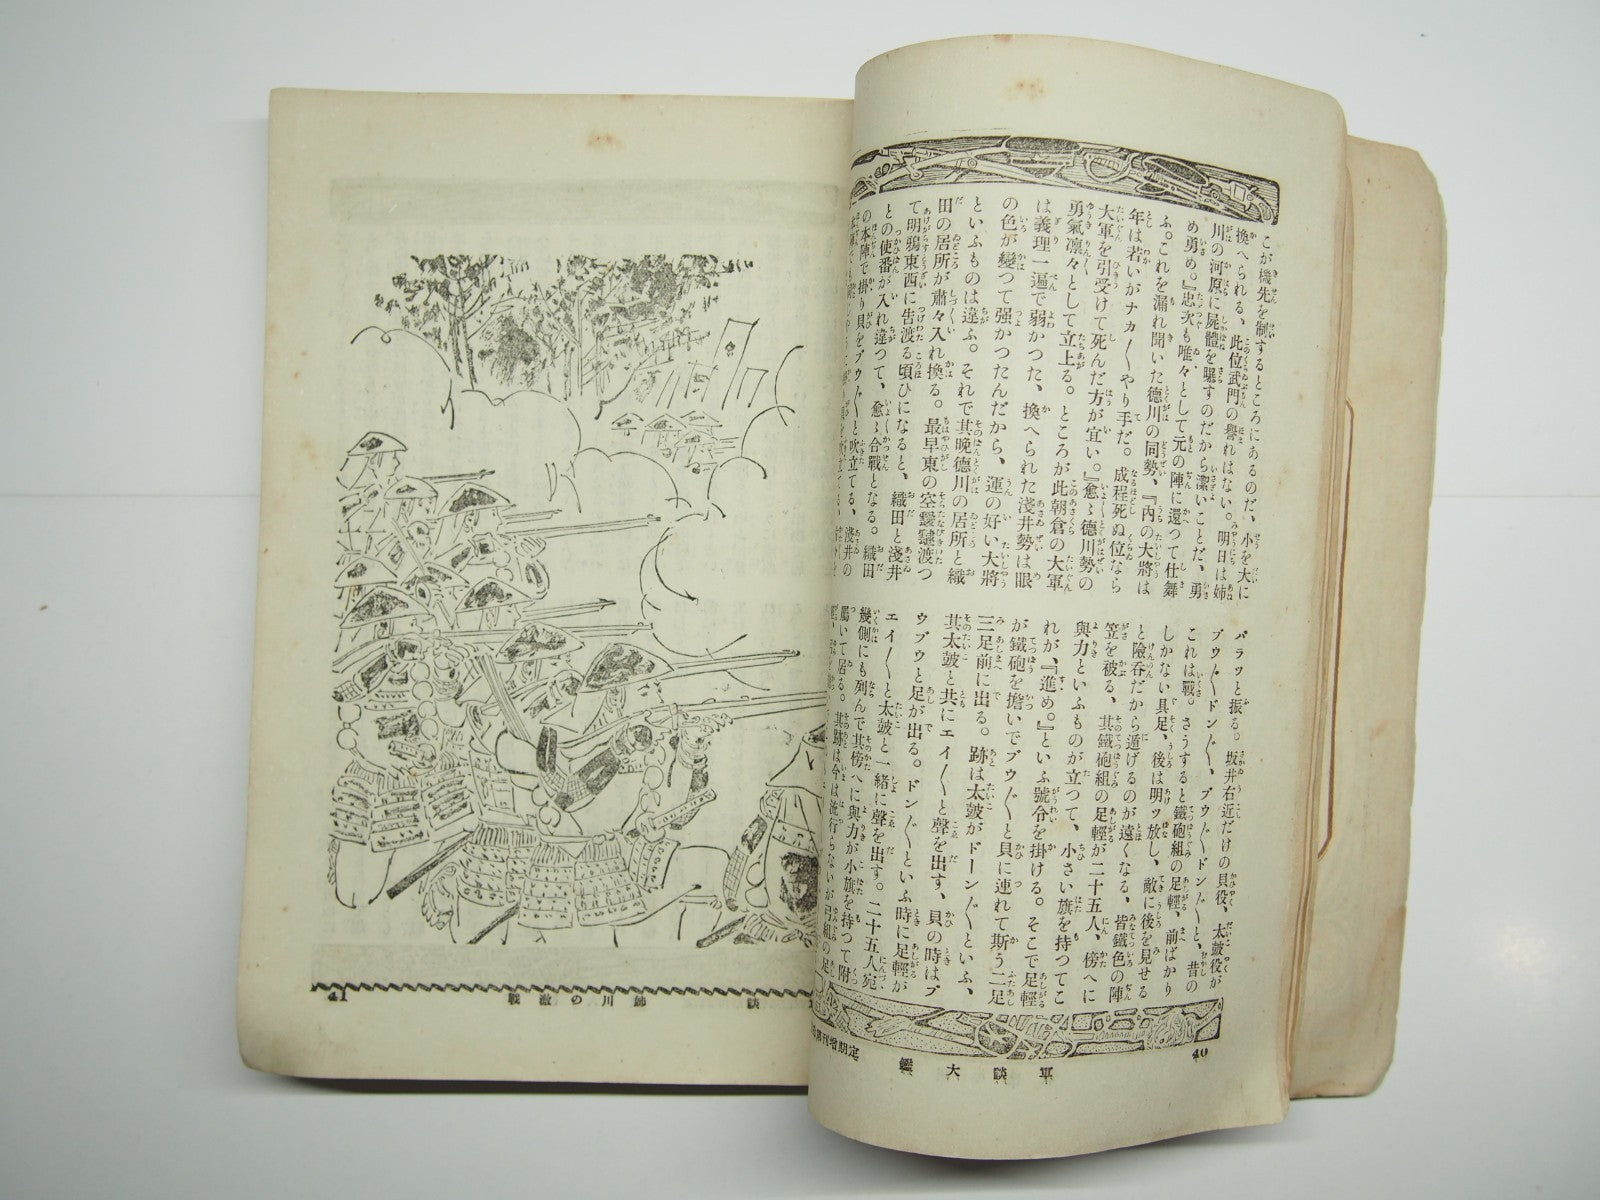 こが機先を制するところにあるのだ、小を大に
換へられる、此位武門の譽れはない。明日は姉
川の河原に屍體を曝すのだから潔いことだ、勇
め勇め。』忠次も唯々として元の陣に還つて仕舞
ふ。これを漏れ聞いた德川の同勢、『内の大將は
年は若いがナカ〱やり手だ。成程死ぬ位なら
大軍を引受けて死んだ方が宜い。』愈〻德川勢の
勇氣凛々として立上る。ところが此朝倉の大軍
は義理一遍で弱かつた、換へられた淺井勢は眼
の色が變つて强かつたんだから、運の好い大將
といふものは違ふ。それで其晩德川の居所と織
田の居所が肅々入れ換る。最早東の空靉靆渡つ
て明鴉東西に告渡る頃ひになると、織田と淺井
との使番が入れ違つて、愈〻合戰となる。織田
の本陣で掛り貝をブウ〱と吹立てる、淺井の
バラツと振る。坂井右近だけの貝役、太皷役が
ブウ〱ドン〱、ブウ〱ドン〱と、昔の
これは戰。さうすると鐵砲組の足輕、前ばかり
しかない具足、後は明ツ放し、敵に後を見せる
と險呑だから逃げるのが遠くなる、皆鐵色の陣
笠を被る、其鐵砲組の足輕が二十五人、傍へに
與力といふものが立つて、小さい旗を持つてこ
れが、『進め。』といふ號令を掛ける。そこで足輕
が鐵砲を擔いでブウ〱と貝に連れて斯う二足
三足前に出る。跡は太皷がドーン〱といふ、
其太皷と共にエイ〱と聲を出す、貝の時はブ
ウブウと足が出る。ドン〱といふ時に足輕が
エイ〱と太皷と一緒に聲を出す。二十五人宛
幾側にも列んで其傍へに與力が小旗を持つて附
屬いて居る。其跡は今は流行らないが弓組の足
定期增刊第
軍談大鑑
40
談
姉川の激戰
41